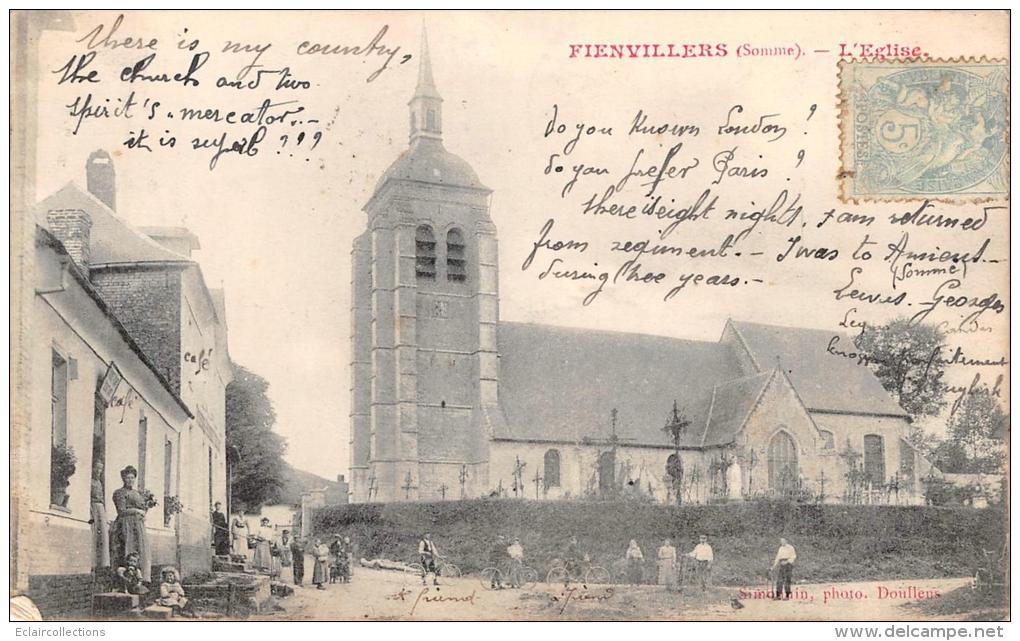 there is my country,
the church and two
spirit's mercator.-
it is superb ???
FIENVILLERS (Somme). — L'Eglise.
5c
POSTES
do you known London ?
do you prefer Paris ?
there is eight nights, I am returned
from regiment.- I was to Amiens.-
(Somme)
during thee years.-
Lewis. Georges
knows parfaitement
english
café
café
a friend
a friend
Simonnin, photo. Doullens
©Eclaircollections
http://www.delcampe.net